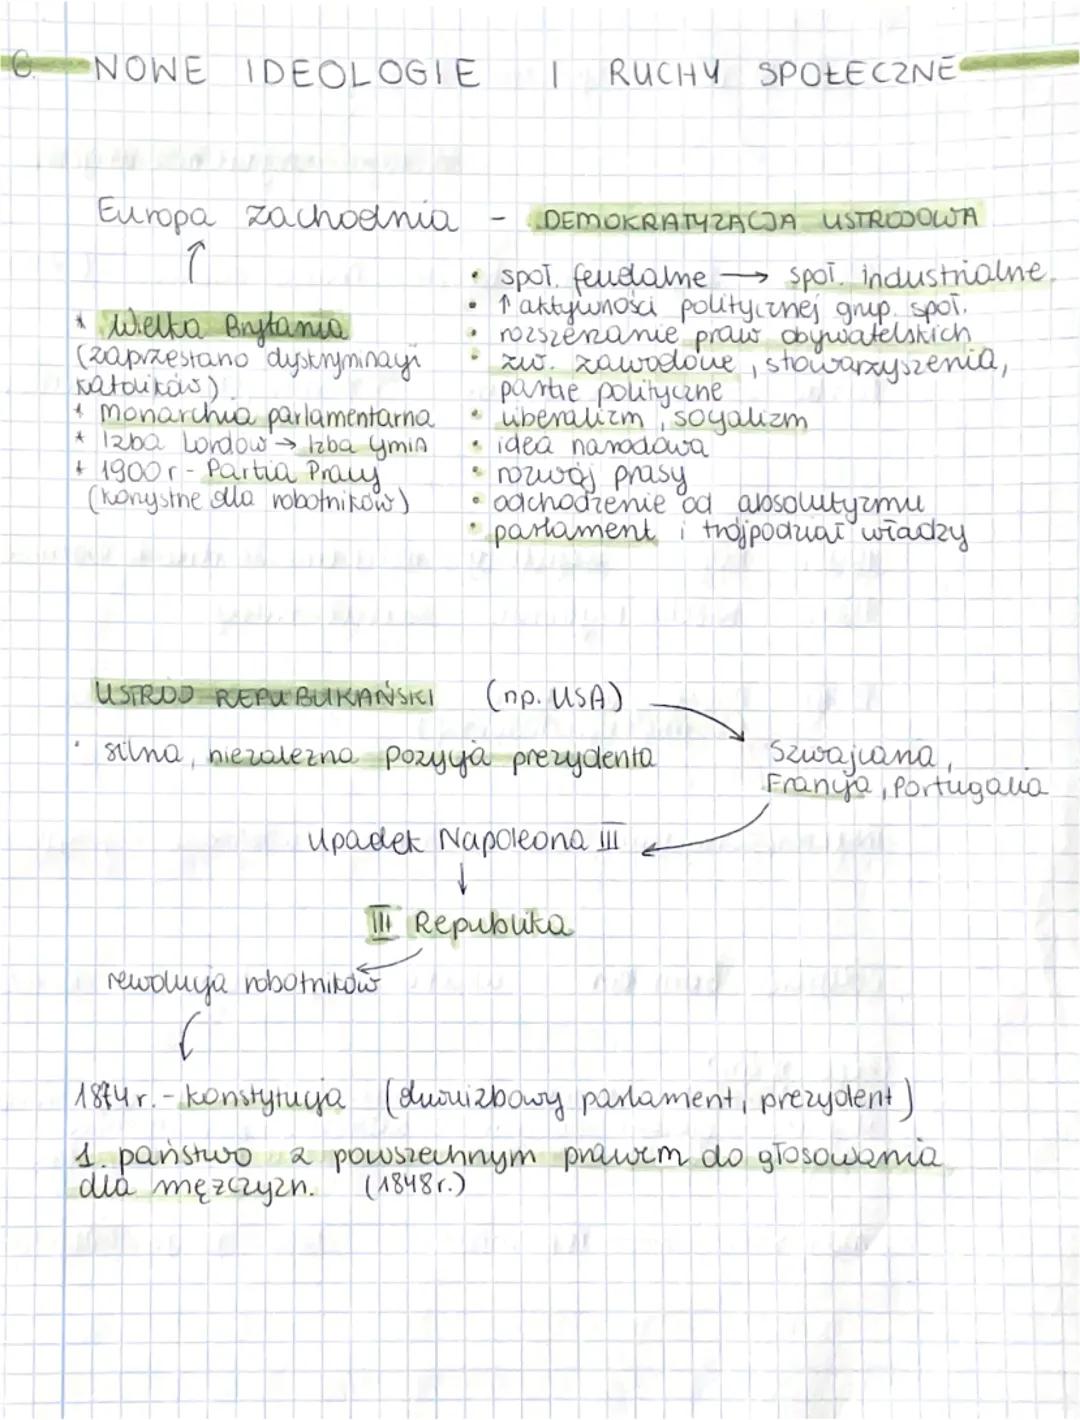 6. NOWE IDEOLOGIE I RUCHY SPOŁECZNE
Europa zachodnia - DEMOKRATYZACJA USTROJOWA
* Wielka Brytania
(zaprzestano dyskryminacji
katolików)
* monarchia parlamentarna
* Izba Lordów → Izba Gmin
* 1900 r - Partia Pracy
(korzystne dla robotników)
• społ. feudalne → społ. industrialne
• ↑ aktywności politycznej grup. społ.
• rozszerzanie praw obywatelskich
• zw. zawodowe, stowarzyszenia,
partie polityczne
• liberalizm, socjalizm
• idea narodowa
• rozwój prasy
• odchodzenie od absolutyzmu
• parlament i trójpodział władzy
USTRÓJ REPUBLIKAŃSKI (np. USA)
• silna, niezależna pozycja prezydenta
Szwajcaria,
Francja, Portugalia
Upadek Napoleona III
↓
III Republika
rewolucja robotników
1874 r. - konstytucja (dwuizbowy parlament, prezydent)
1. państwo z powszechnym prawem do głosowania
dla mężczyzn. (1848 r.)